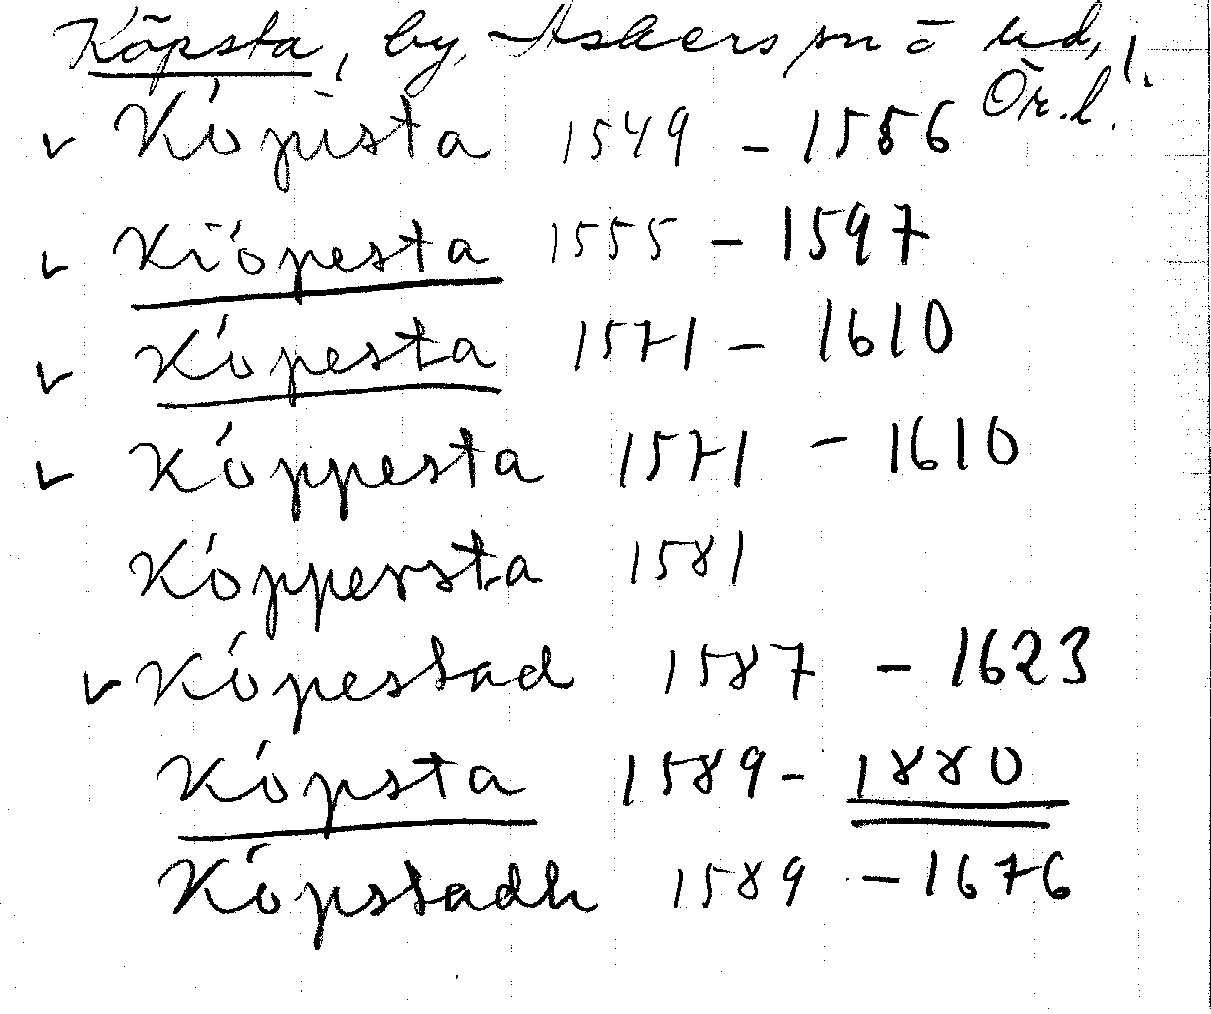 Köpsta, by, Askersunds ld,
Ör. l.
v Köpista 1549 – 1556
v Kiöpesta 1555 – 1597
v Köpesta 1571 – 1610
v Köppesta 1571 – 1610
Köppersta 1581
v Köpestad 1587 – 1623
Köpsta 1589 – 1880
Köpstadh 1589 – 1676